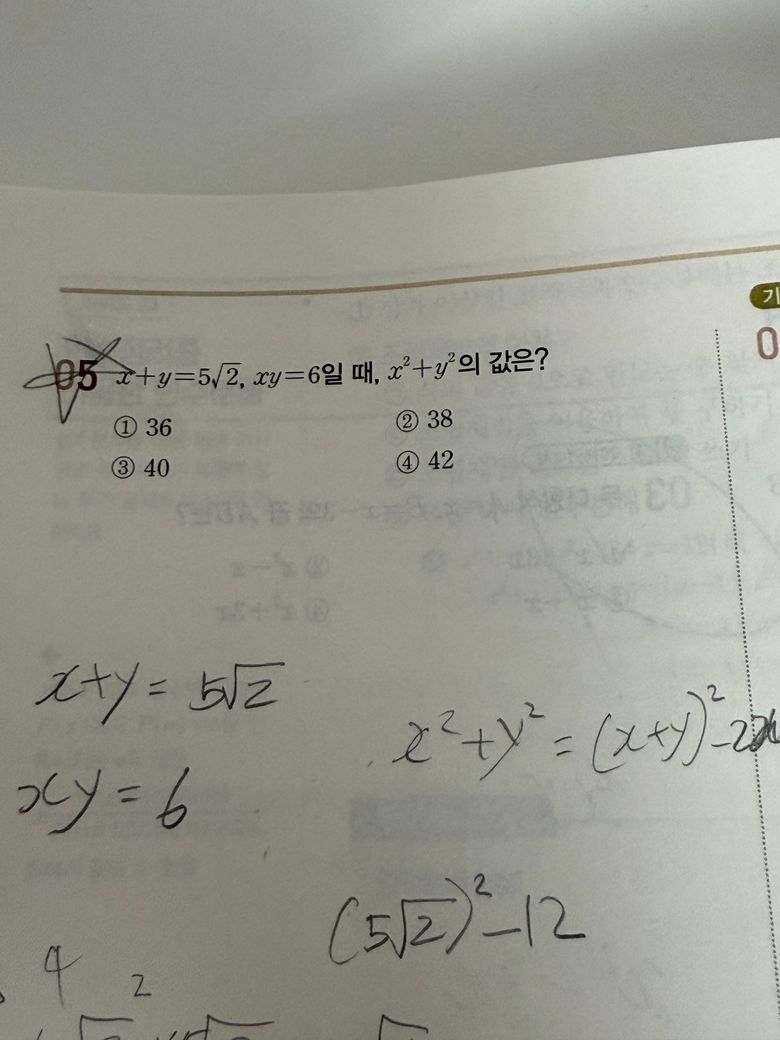 기
0
05 x+y=5√2, xy=6일 때, x²+y²의 값은?
① 36 ② 38
③ 40 ④ 42
x+y=5√2
x²+y²=(x+y)²-2x
xy=6
(5√2)²-12
4 2